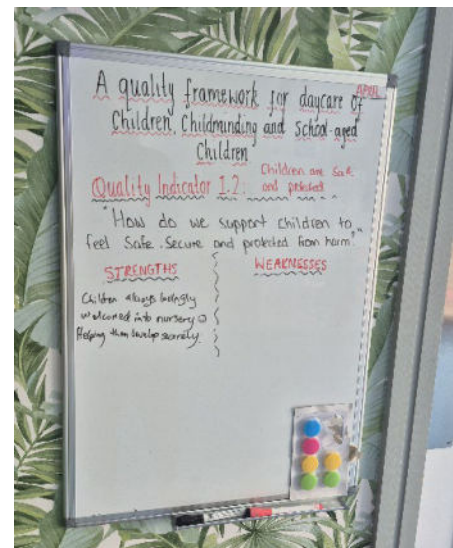 APRIL
A quality framework for daycare of
Children. Childminding and School-aged
Children
Quality Indicator 1.2: Children are Safe
and protected
"How do we support children to
feel Safe. Secure and protected from harm?"
STRENGTHS
WEAKNESSES
Children always lovingly
welcomed into nursery
Helping them develop securely.